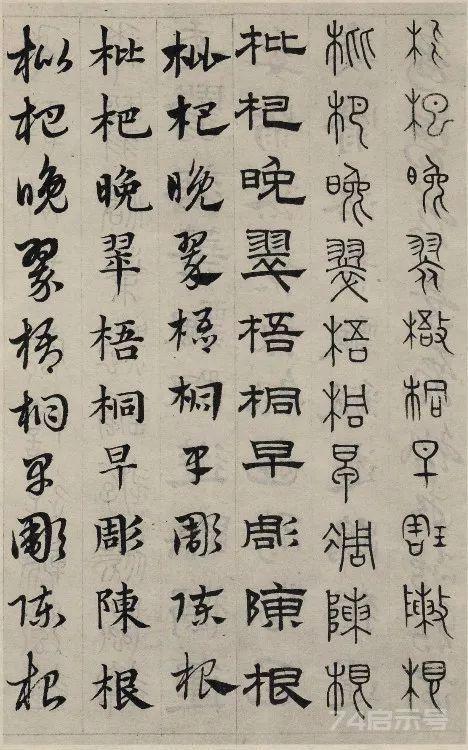 枇杷晚翠梧桐早彫陳根
枇杷晚翠梧桐早彫陳根
枇杷晚翠梧桐早彫陳根
枇杷晚翠梧桐早彫陳根
枇杷晚翠梧桐早彫陳根
枇杷晚翠梧桐早彫陳根
74启示号